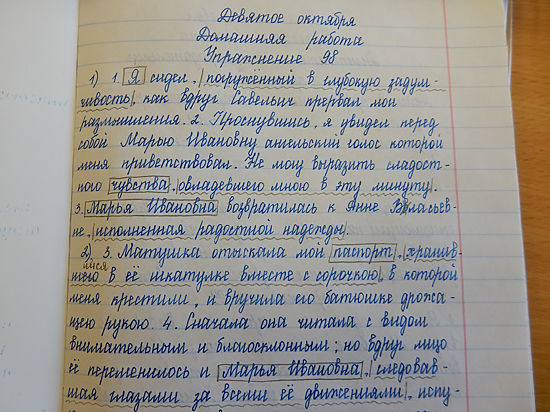 Девятое октября
Домашняя работа
Упражнение 98
1) 1. Я сидел, погружённый в глубокую задум-
чивость, как вдруг Савельич прервал мои
размышления. 2. Проснувшись, я увидел перед
собой Марью Ивановну ангельский голос которой
меня приветствовал. Не могу выразить сладост-
ного чувства, овладевшего мною в эту минуту.
3. Марья Ивановна возвратилась к Анне Власьев-
не, исполненная радостной надежды.
2) 3. Матушка отыскала мой паспорт, хранив-
шийся в её шкатулке вместе с сорочкою, в которой
меня крестили, и вручила его батюшке дрожа-
щею рукою. 4. Сначала она читала с видом
внимательным и благосклонным; но вдруг лицо
её переменилось и Марья Ивановна, следовав-
шая глазами за всеми её движениями, испу-